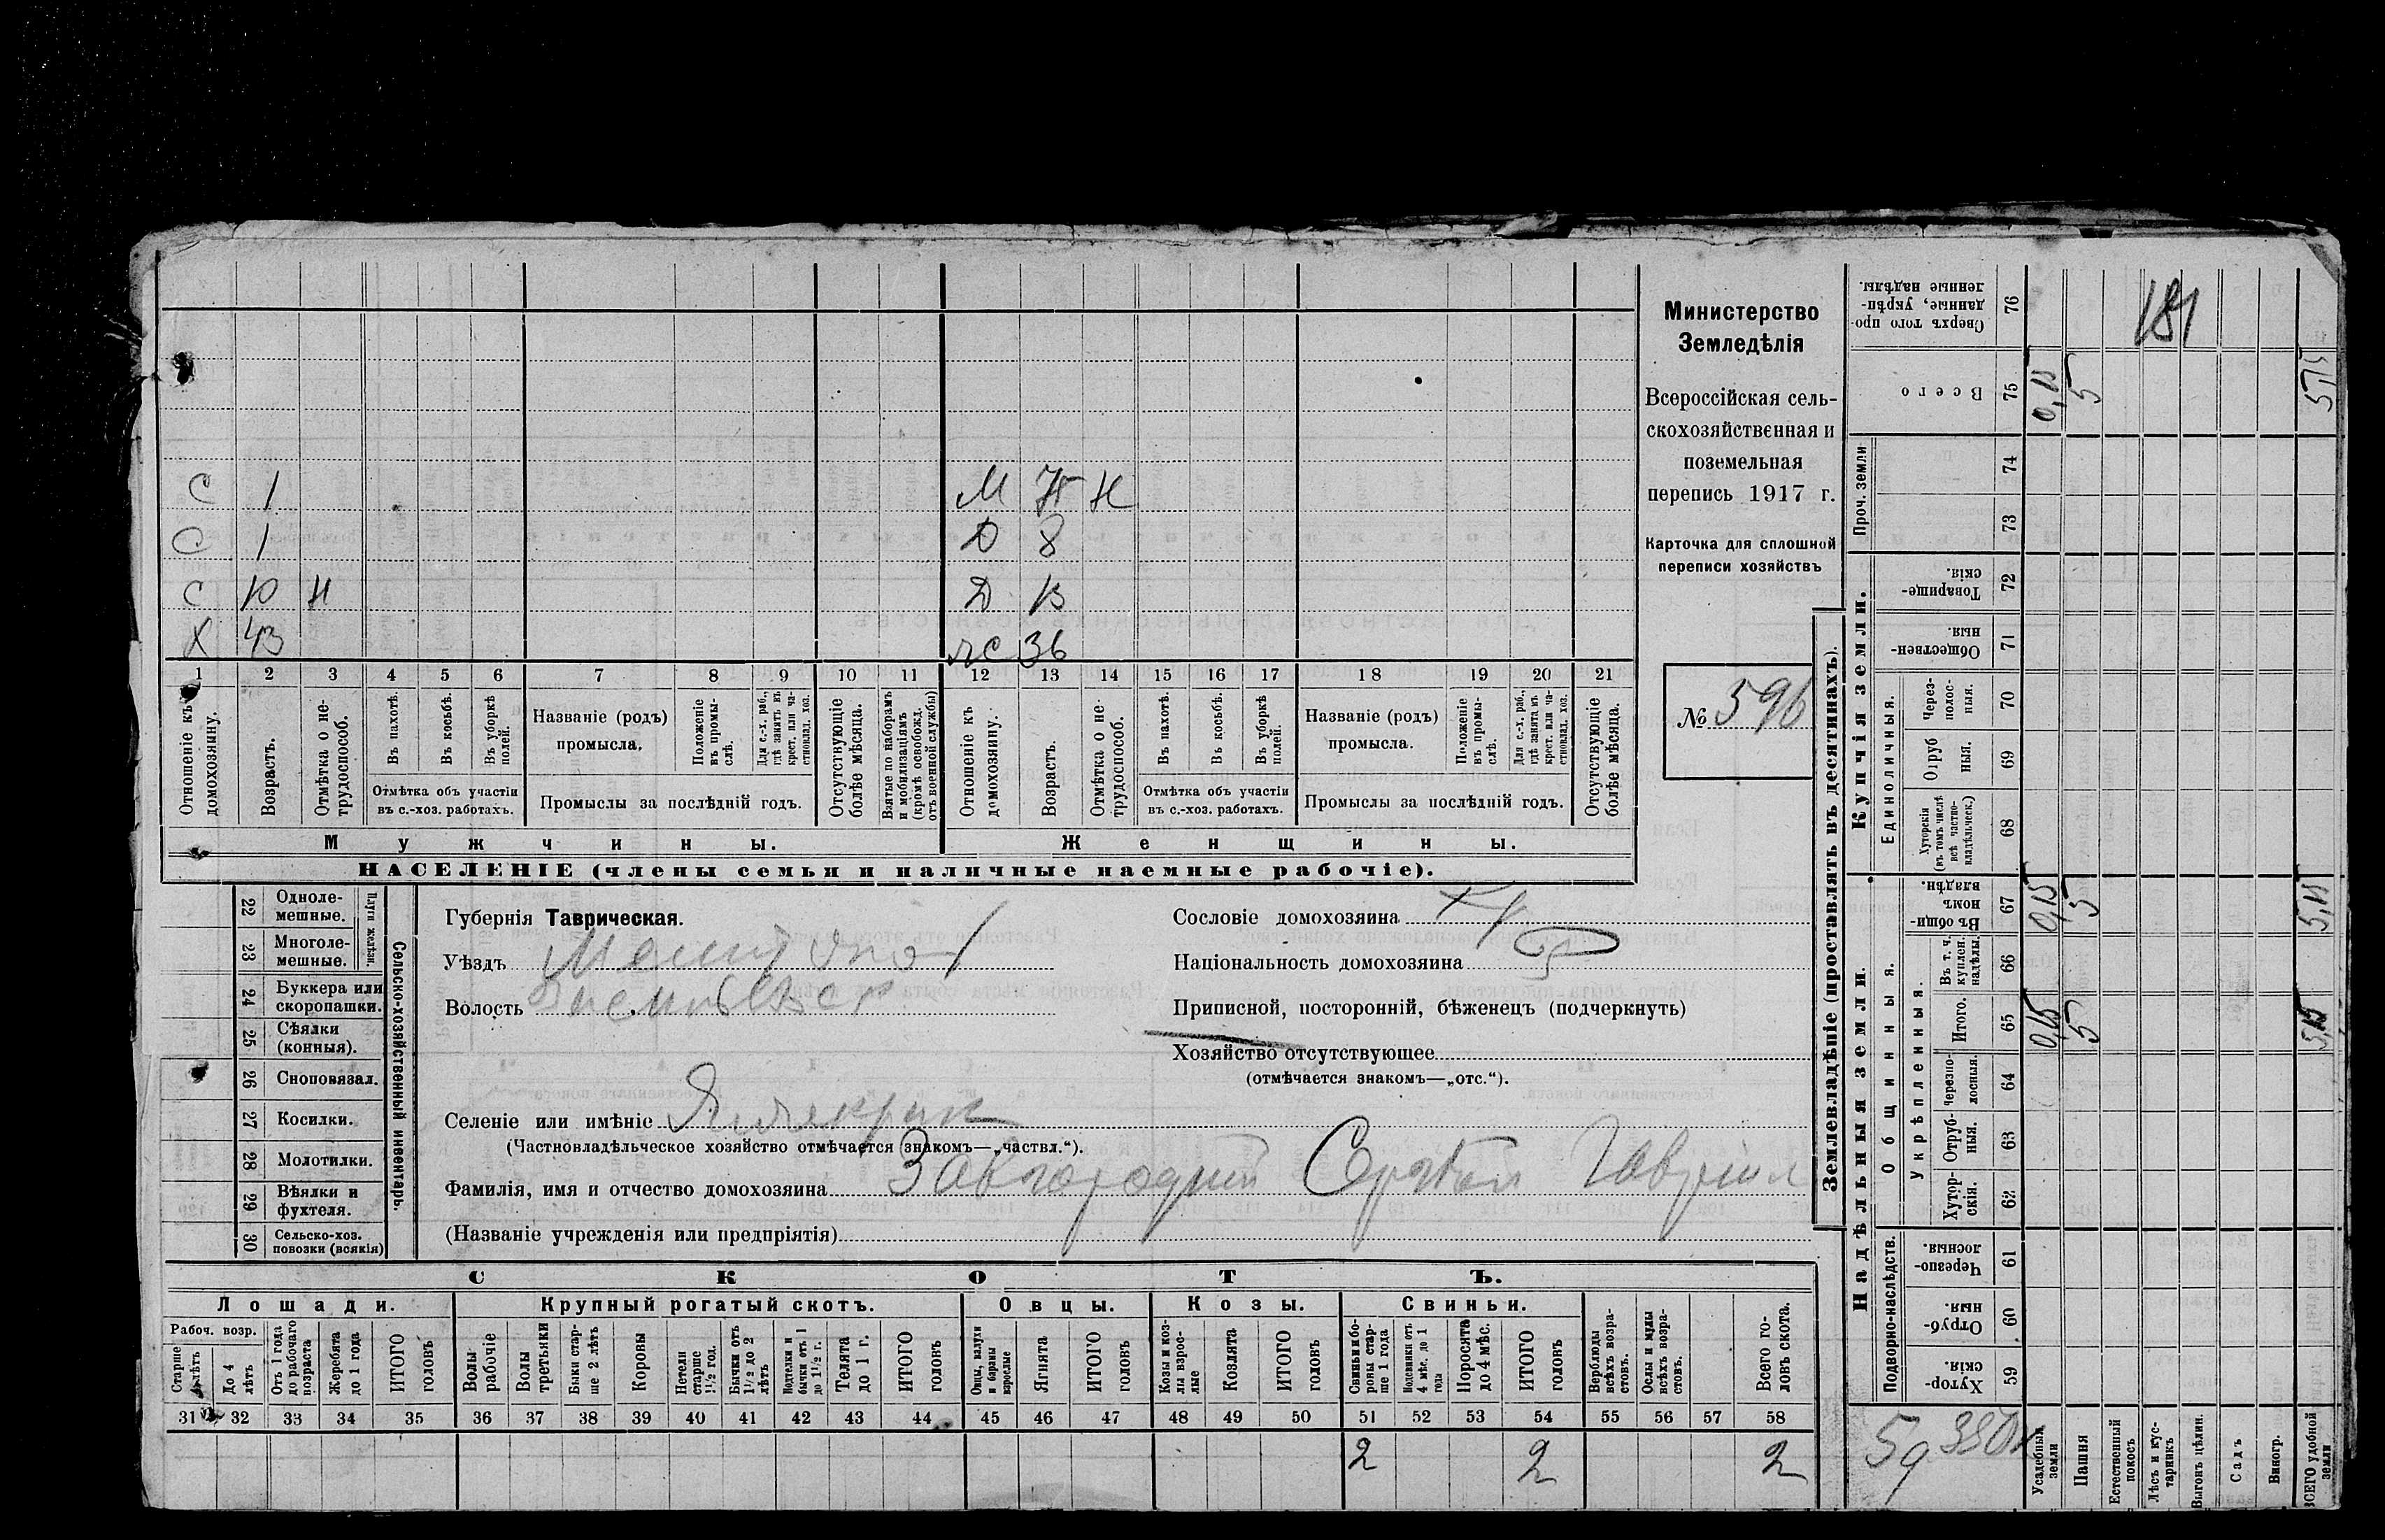 Министерство
Земледѣлія
Всероссійская сель-
скохозяйственная и
поземельная
перепись 1917 г.
Карточка для сплошной
переписи хозяйствъ
№ 596
С 1 М Н
С 1 Д 8
С Н Д 13
Х 43 36
1 2 3 4 5 6 7 8 9 10 11 12 13 14 15 16 17 18 19 20 21
Отношеніе къ домохозяину.
Возрастъ.
Отмѣтка о не-трудоспособ.
Въ пахотѣ.
Въ косьбѣ.
Въ уборкѣ полей.
Отмѣтка объ участіи
въ с.-хоз. работахъ.
Названіе (родъ)
промысла.
Положеніе въ промы-слѣ.
Для с.-х. раб., гдѣ занятъ въ крест. или ча-стновлад. хоз.
Промыслы за послѣдній годъ.
Отсутствующіе болѣе мѣсяца.
Взятые по наборамъ и мобилизаціямъ (кромѣ освобожд. отъ военной службы)
Отношеніе къ домохозяину.
Возрастъ.
Отмѣтка о не-трудоспособ.
Въ пахотѣ.
Въ косьбѣ.
Въ уборкѣ полей.
Отмѣтка объ участіи
въ с.-хоз. работахъ.
Названіе (родъ)
промысла.
Положеніе въ промы-слѣ.
Для с.-х. раб., гдѣ занята въ крест. или ча-стновлад. хоз.
Промыслы за послѣдній годъ.
Отсутствующіе болѣе мѣсяца.
Мужчины. Женщины.
НАСЕЛЕНІЕ (члены семьи и наличные наемные рабочіе).
22 Одноле-мешные.
23 Многоле-мешные.
Плуги желѣзн.
24 Буккера или скоропашки.
25 Сѣялки (конныя).
26 Сноповязал.
27 Косилки.
28 Молотилки.
29 Вѣялки и фухтеля.
30 Сельско-хоз. повозки (всякія)
Сельско-хозяйственный инвентарь.
Губернія Таврическая.
Уѣздъ
Волость
Селеніе или имѣніе
(Частновладѣльческое хозяйство отмѣчается знакомъ—„частвл.“).
Фамилія, имя и отчество домохозяина Завгородній Сергѣй Гавріил
(Названіе учрежденія или предпріятія)
Сословіе домохозяина
Національность домохозяина
Приписной, посторонній, бѣженецъ (подчеркнуть)
Хозяйство отсутствующее
(отмѣчается знакомъ—„отс.“).
СКОТЪ.
Лошади. Крупный рогатый скотъ. Овцы. Козы. Свиньи.
Рабоч. возр.
Старше 4 лѣтъ
До 4 лѣтъ
Отъ 1 года до рабочаго возраста
Жеребята до 1 года
ИТОГО головъ
Волы рабочіе
Волы третьяки
Быки стар-ше 2 лѣтъ
Коровы
Нетели старше 1½ год.
Бычки отъ 1½ до 2 лѣтъ
Подтелки и бычки отъ 1 до 1½ г.
Телята до 1 г.
ИТОГО головъ
Овцы, валухи и бараны взрослые
Ягнята
ИТОГО головъ
Козы и коз-лы взрос-лые
Козлята
ИТОГО головъ
Свиньи и бо-ровы стар-ше 1 года
Подсвинки отъ 4 мѣс. до 1 года
Поросята до 4 мѣс.
ИТОГО головъ
Верблюды всѣхъ возра-стовъ.
Ослы и мулы всѣхъ возра-стовъ.
Всего го-ловъ скота.
31 32 33 34 35 36 37 38 39 40 41 42 43 44 45 46 47 48 49 50 51 52 53 54 55 56 57 58
2 2 2
Землевладѣніе (проставлять въ десятинахъ).
Сверхъ того про-данные, укрѣп-ленные надѣлы. 76
Всего 75 0,15 5 5,15
Проч. земли 74
73
Купчія земли.
Товарище-скія. 72
Обществен-ныя. 71
Единоличныя.
Через-полос-ныя. 70
Отруб-ныя. 69
Хуторскія (въ томъ числѣ всѣ частно-владѣльческ.) 68
Надѣльныя земли.
Общинныя.
Въ общи-номъ владѣн. 67 0,15 5 5,15
Укрѣпленныя.
Въ т. ч. куплен. надѣлы. 66
Итого. 65 0,15 5 5,15
Черезпо-лосныя. 64
Отруб-ныя. 63
Хутор-скія. 62
Подворно-наслѣдств.
Черезпо-лосныя. 61
Отруб-ныя. 60
Хутор-скія. 59
Усадебныя земли
Пашня
Естественный покосъ
Лѣсъ и кус-тарникъ
Выгонъ цѣлин.
Садъ
Виногр.
ВСЕГО удобной земли